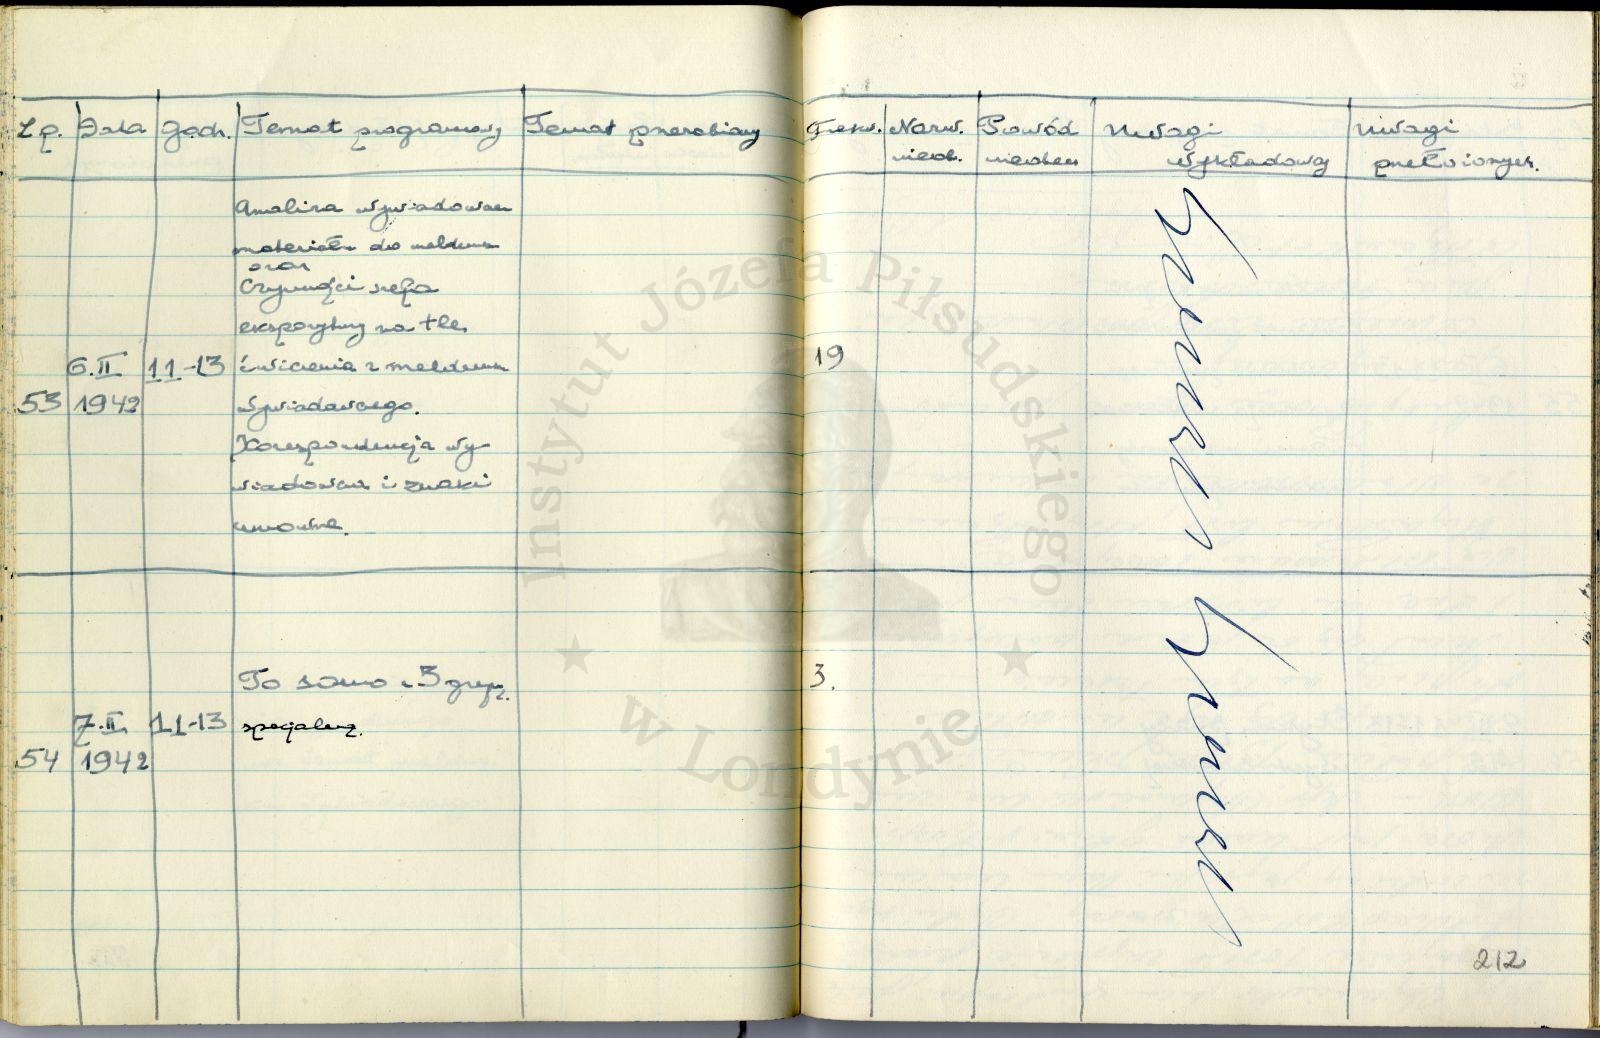 Lp. Data Godz. Temat programowy Temat przerobiony Frekw. Nazw. Powód Uwagi Uwagi
nieob. nieoben wykładowcy przełożonych.
Analiza wywiadowcza
materiału do meldunku
oraz
Czynności szefa
ekspozytury na tle
6.II 11-13 ćwiczenia z meldunku 19
53 1942 wywiadowczego.
Korespondencja wy-
wiadowcza i znaki
umowne.
To samo z 3 grupą 3.
7.II 11-13 specjalną.
54 1942
212
Instytut Józefa Piłsudskiego
w Londynie